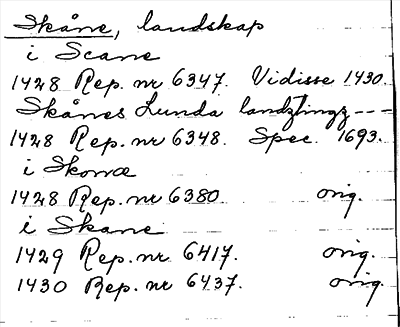 Skåne, landskap
i Scane
1428 Rep. nr 6347. Vidisse 1430.
Skånes Lunda landztingz ---
1428 Rep. nr 6348. Spec. 1693.
i Skonæ
1428 Rep. nr 6380. orig.
i Skane
1429 Rep. nr 6417. orig.
1430 Rep. nr 6437. orig.